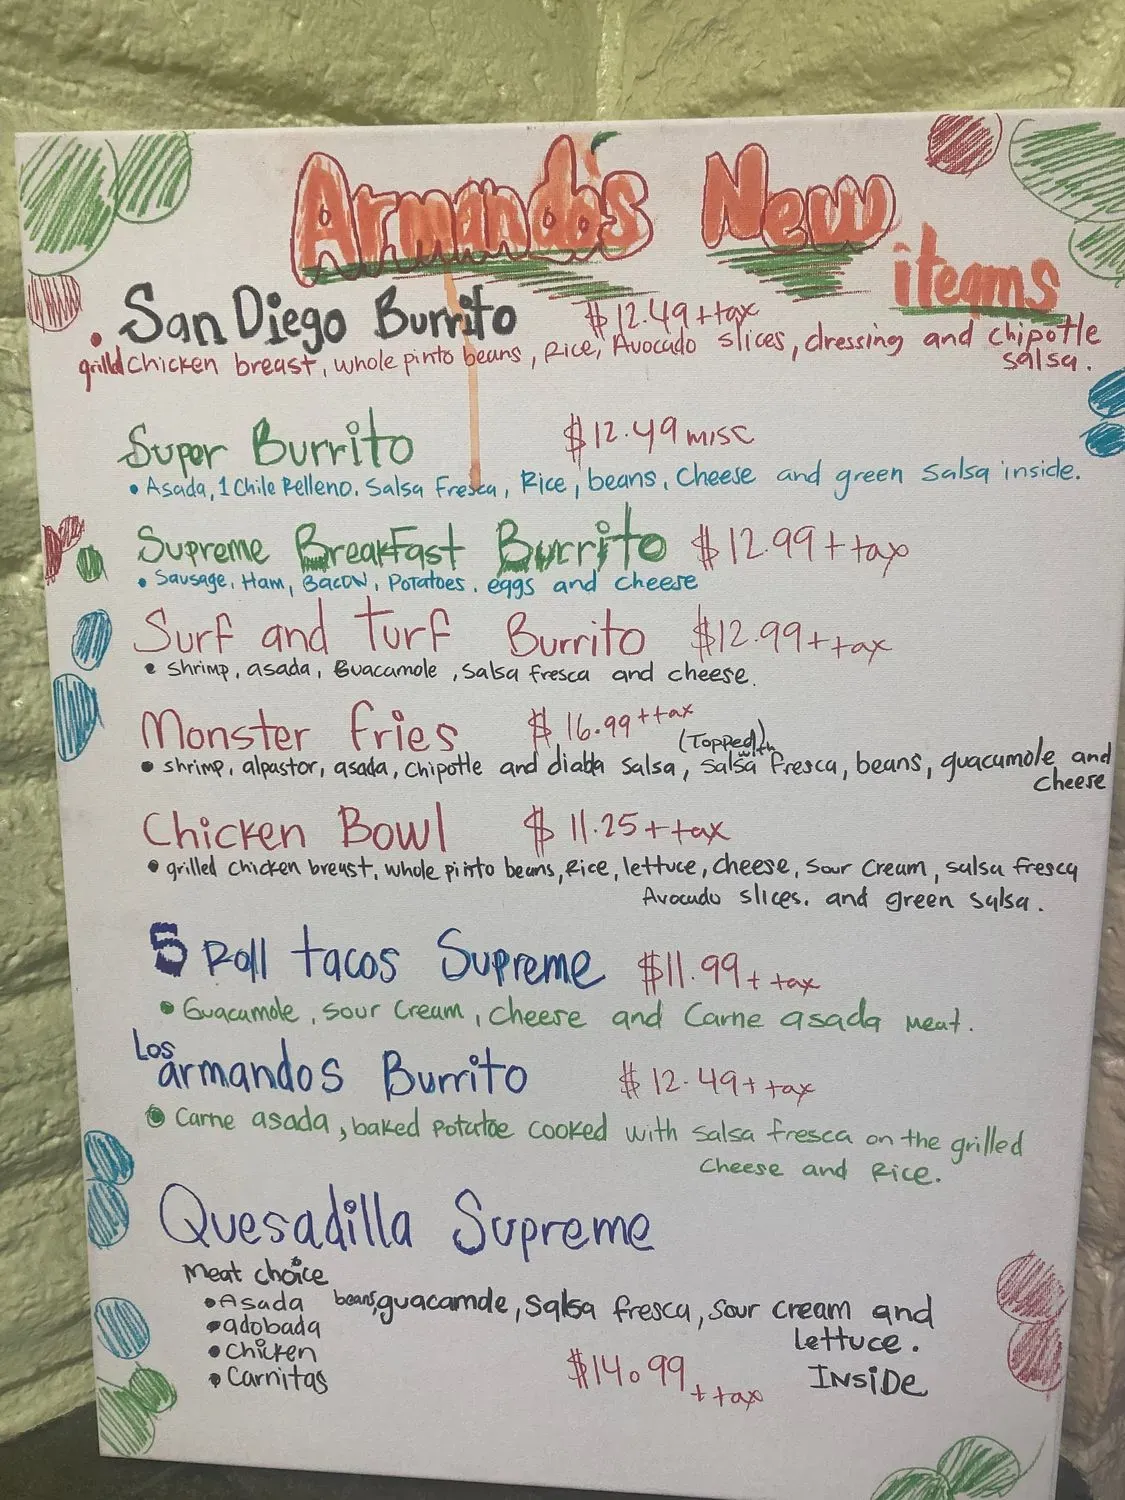 Armando's New
items
San Diego Burrito $12.49 + tax
• grilled Chicken breast, whole pinto beans, Rice, Avocado slices, dressing and chipotle
salsa.
Super Burrito $12.49 misc
• Asada, 1 Chile Relleno. Salsa Fresca, Rice, beans, Cheese and green salsa inside.
Supreme BreakFast Burrito $12.99 + tax
• Sausage, Ham, Bacon, Potatoes. eggs and cheese
Surf and turf Burrito $12.99 + tax
• shrimp, asada, Guacamole, salsa fresca and cheese.
Monster fries $16.99 + tax
(Topped) with
• shrimp, alpastor, asada, chipotle and diabla salsa, salsa fresca, beans, guacamole and
cheese
Chicken Bowl $11.25 + tax
• grilled chicken breast, whole pinto beans, Rice, lettuce, cheese, sour cream, salsa fresca
Avocado slices. and green salsa.
5 Roll tacos Supreme $11.99 + tax
• Guacamole, sour cream, cheese and Carne asada meat.
Los
armandos Burrito $12.49 + tax
• Carne asada, baked potatoe cooked with salsa fresca on the grilled
cheese and Rice.
Quesadilla Supreme
Meat choice
• Asada beans, guacamole, Salsa fresca, sour cream and
• adobada lettuce.
• chicken $14.99 + tax INSiDe
• Carnitas